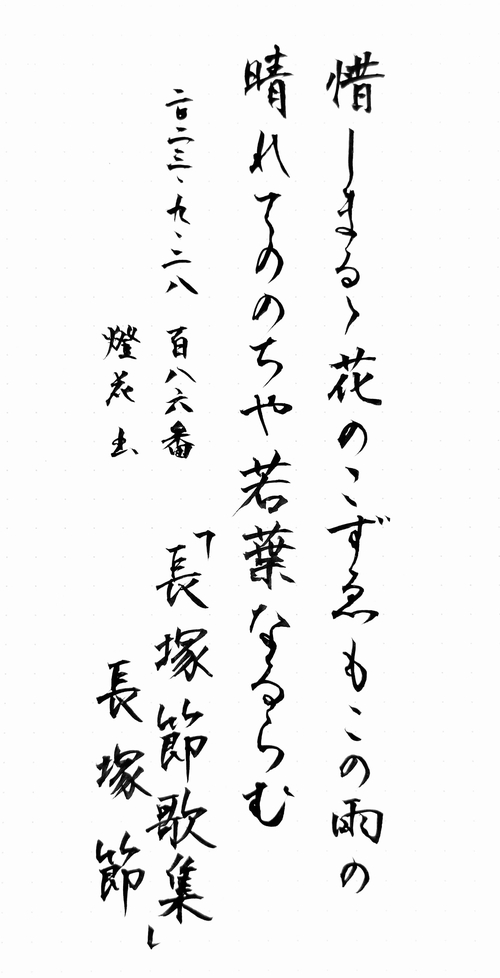 惜しまるゝ花のこずゑもこの雨の
晴れてののちや若葉なるらむ
二〇二三、九、二八 百八六番 「長塚節歌集」
燈花 書 長塚節